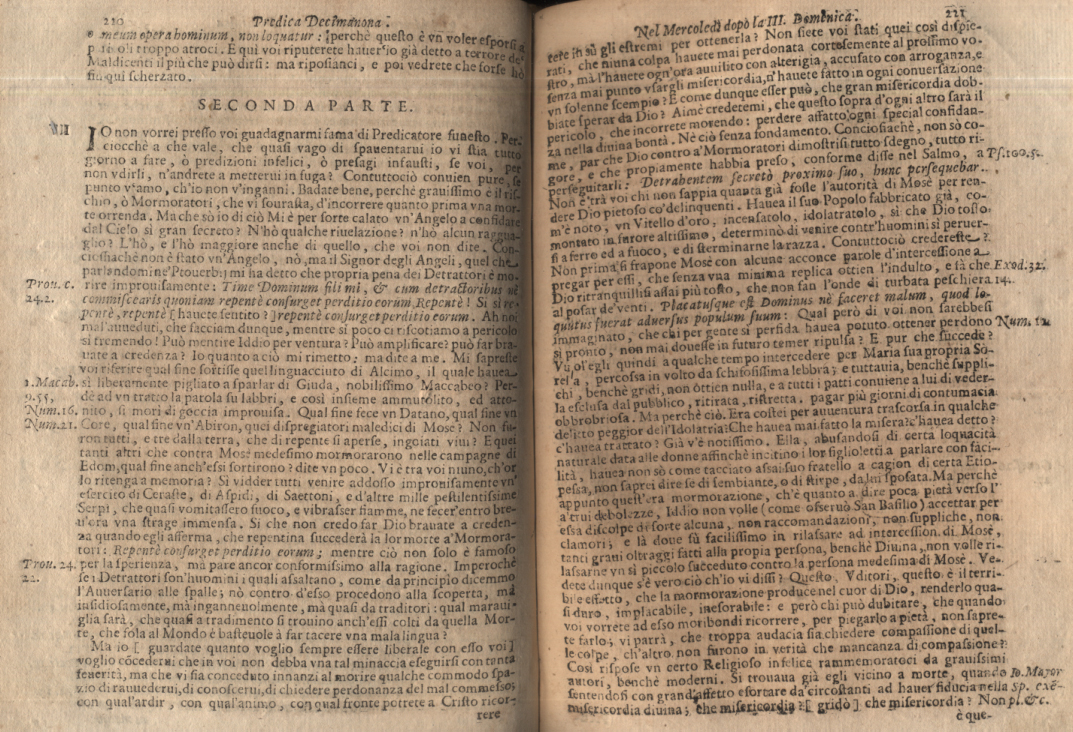 220 Predica Decimanona.
o meum opera hominum, non loquatur: perchè questo è vn voler esporsi a
troppo atroci. E qui voi riputerete hauer'io già detto a terrore de'
Maldicenti il più che può dirsi: ma riposianci, e poi vedrete che forse hò
fin qui scherzato.
SECONDA PARTE.
VII
IO non vorrei presso voi guadagnarmi fama di Predicatore funesto. Per-
ciocchè a che vale, che quasi vago di spauentarui io vi stia tutto
giorno a fare, ò predizioni infelici, ò presagi infausti, se voi, per
non vdirli, n'andrete a metterui in fuga? Contuttociò conuien pure, se
punto v'amo, ch'io non v'inganni. Badate bene, perchè grauissimo è il ris-
chio, ò Mormoratori, che vi sourasta, d'incorrere quanto prima vna mor-
te orrenda. Ma che sò io di ciò? Mi è per sorte calato vn'Angelo a confidare
dal Cielo sì gran secreto? N'hò qualche riuelazione? n'hò alcun raggua-
glio? L'hò, e l'hò maggiore anche di quello, che voi non dite. Con-
ciossiachè non è stato vn'Angelo, nò, ma il Signor degli Angeli, quel che
parlandomi ne'Prouerbij mi ha detto che propria pena dei Detrattori è mo-
Prou. c. rire improuisamente: Time Dominum fili mi, & cum detractoribus nè
24.2. commiscearis quoniam repentè consurget perditio eorum. Repentè! Si si re-
pentè, repentè [hauete sentito?] repentè consurget perditio eorum. Ah noi
mal'auueduti, che facciam dunque, mentre sì poco ci riscotiamo a pericolo
sì tremendo! Può mentire Iddio per ventura? Può amplificare? può far bra-
uate a credenza? Io quanto a ciò mi rimetto; ma dite a me. Mi sapreste
voi riferire qual fine sortisse quel linguacciuto di Alcimo, il quale hauea
1. Macab. sì liberamente pigliato a sparlar di Giuda, nobilissimo Maccabeo? Per-
9.55, dè ad vn tratto la parola su labbri, e così insieme ammutolito, ed atto-
Num. 16. nito, si morì di goccia improuisa. Qual fine fece vn Datano, qual fine vn
Num. 21. Core, qual fine vn'Abiron, quei dispregiatori maledici di Mosè? Non fu-
ron tutti, e tre dalla terra, che di repente si aperse, ingoiati viui? E quei
tanti altri che contra Mosè medesimo mormorarono nelle campagne di
Edom, qual fine anch'essi sortirono? dite vn poco. Vi è tra voi niuno, ch'or
lo ritenga a memoria? Si vidder tutti venire addosso improuisamente vn'
esercito di Ceraste, di Aspidi, di Saettoni, e d'altre mille pestilentissime
Serpi, che quasi vomitassero fuoco, e vibrasser fiamme, ne fecer'entro bre-
u'ora vna strage immensa. Si che non credo far Dio brauate a creden-
za quando egli asserma, che repentina succederà la lor morte a'Mormora-
tori: Repentè consurget perditio eorum; mentre ciò non solo è famoso
Prou. 24. per la sperienza, ma pare ancor conformissimo alla ragione. Imperochè
22. se i Detrattori son'huomini i quali assaltano, come da principio dicemmo
l'Auuersario alle spalle; nò contro d'esso procedono alla scoperta, ma
insidiosamente, ma ingannevolmente, ma quasi da traditori: qual maraui-
glia sarà, che quasi a tradimento si trouino anch'essi colti da quella Mor-
te, che sola al Mondo è basteuole à far tacere vna mala lingua?
Ma io [guardate quanto voglio sempre essere liberale con esso voi]
voglio cócederui che in voi non debba vna tal minaccia eseguirsi con tanta
seuerità, ma che vi sia conceduto innanzi al morire qualche commodo spa-
zio di rauuederui, di conoscerui, di chiedere perdonanza del mal commesso;
con qual'ardir, con qual'animo, con qual fronte potrete a Cristo ricor-
rere
Nel Mercoledì dopò la III. Domenica. 221
rere in sù gli estremi per ottenerla? Non siete voi stati quei così dispie-
rati, che niuna colpa hauete mai perdonata cortesemente al prossimo vo-
stro, mà l'hauete ogn'ora auuilito con alterigia, accusato con arroganza, e
senza mai punto vsargli misericordia, n'hauete fatto in ogni conuersazione
vn solenne scempio? E come dunque esser può, che gran misericordia dob-
biate sperar da Dio? Aimè credetemi, che questo sopra d'ogni altro sarà il
pericolo, che incorrete morendo: perdere affatto ogni special confidan-
za nella diuina bontà. Nè ciò senza fondamento. Conciosiachè, non sò co-
me, par che Dio contro a'Mormoratori dimostrisi tutto sdegno, tutto ri-
gore, e che propriamente habbia preso, conforme disse nel Salmo, a Ps.100.5.
perseguitarli: Detrahentem secretò proximo suo, hunc persequebar.
Non è trà voi chi non sappia quanta già fosse l'autorità di Mosè per ren-
dere Dio pietoso co'delinquenti. Hauea il suo Popolo fabbricato già, co-
m'è noto, vn Vitello d'oro, incensatolo, idolatratolo, sì che Dio tosto
montato in furore altissimo, determinò di venire contr'huomini sì peruer-
si a ferro ed a fuoco, e di sterminarne la razza. Contuttociò credereste?
Non prima si frapone Mosè con alcune acconce parole d'intercessione a
pregar per essi, che senza vna minima replica ottien l'indulto, e fà che Exod.32.
Dio ritranquillisi assai più tosto, che non fan l'onde di turbata peschiera 14.
al posar de'venti. Placatusque est Dominus nè faceret malum, quod lo-
quutus fuerat aduersus populum suum: Qual però di voi non sarebbesi
immaginato, che chi per gente sì perfida hauea potuto ottener perdono Num. 12.
sì pronto, non mai douesse in futuro temer ripulsa? E pur che succede?
Vuol'egli quindi a qualche tempo intercedere per Maria sua propria So-
rel'a, percossa in volto da schifosissima lebbra; e tuttauia, benchè suppli-
chi, benchè gridi, non ottien nulla, e a tutti i patti conuiene a lui di veder-
la esclusa dal pubblico, ritirata, ristretta, pagar più giorni di contumacia
obbrobriosa. Ma perchè ciò. Era costei per auuentura trascorsa in qualche
delitto peggior dell'Idolatria? Che hauea mai fatto la misera? c'hauea detto?
c'hauea trattato? Già v'è notissimo. Ella, abusandosi di certa loquacità
naturale data alle donne affinchè incitino i lor figlioletti a parlare con faci-
lità, hauea non sò come tacciato assai suo fratello a cagion di certa Etio-
pessa, non saprei dire se di sembiante, o di stirpe, da lui sposata. Ma perchè
appunto quest'era mormorazione, ch'è quanto a dire poca pietà verso l'
a'trui debolezze, Iddio non volle (come osseruò San Basilio) accettar per
essa discolpe di sorte alcuna, non raccomandazioni, non suppliche, non
clamori; e là doue sù facilissimo in rilassare ad intercession di Mosè,
tanti graui oltraggi fatti alla propria persona, benchè Diuina, non volle ri-
lassarne vn sì piccolo succeduto contro la persona medesima di Mosè. Ve-
dete dunque s'è vero ciò ch'io vi dissi? Questo, Vditori, questo è il terri-
bi'e effetto, che la mormorazione produce nel cuor di Dio, renderlo qua-
si duro, implacabile, inesorabile: e però chi può dubitare, che quando
voi vorrete ad esso moribondi ricorrere, per piegarlo a pietà, non sapre-
te farlo; vi parrà, che troppa audacia sia chiedere compassione di quel-
le colpe, ch'altro non furono in verità che mancanza di compassione?
Così rispose vn certo Religioso infelice rammemoratoci da grauissimi
autori, benchè moderni. Si trouaua già egli vicino a morte, quando Io. Mayor
sentendosi con grand'affetto esortare da circostanti ad hauer fiducia nella Sp. exē-
misericordia diuina; che misericordia? [gridò] che misericordia? Non pl. &c.
è que-